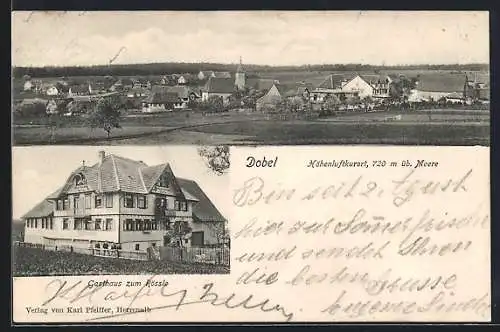 Dobel
Höhenluftkurort, 720 m üb. Meere
Bin seit 2. August
hier zur Somerfrische
und sendet Ihnen
die besten Grüsse
Gasthaus zum Rössle
Verlag von Karl Pfeiffer, Herrenalb